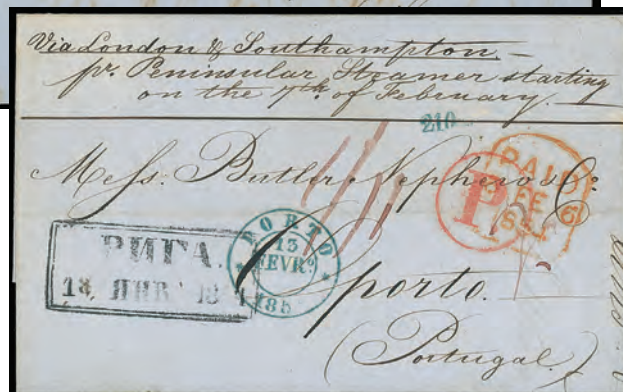 Via London & Southampton. —
pr. Peninsular Steamer starting
on the 7th of February.
210
Messs. Butler Nephew & Co.
PAID
P
РИГА.
18 ЯНВ
PORTO
13
FEVRo
185
porto.
(Portugal.)